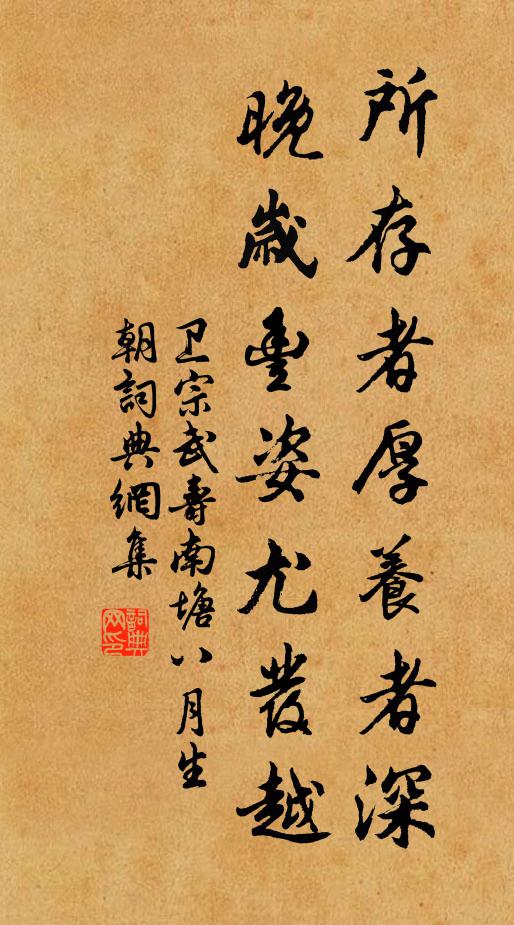 所存者厚養者深
晚歲豐姿尤發越
卫宗武壽南塘八月生
朝詞典網集
詞典网印